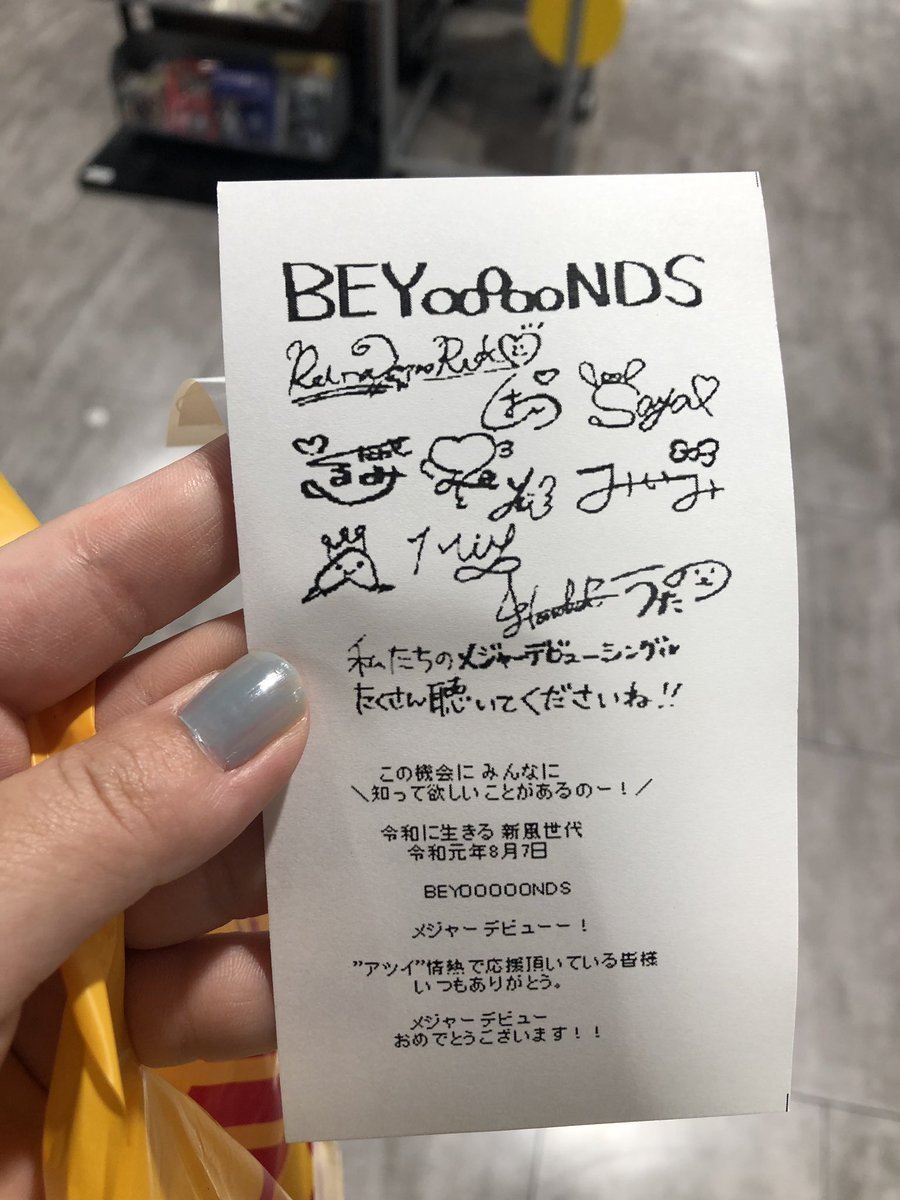 BEYOOOOONDS
Saya
私たちのメジャーデビューシングル
たくさん聴いてくださいね!!
この機会に みんなに
＼知って欲しいことがあるのー！／
令和に生きる 新風世代
令和元年8月7日
BEYOOOOONDS
メジャーデビューー！
”アツイ”情熱で応援頂いている皆様
いつもありがとう。
メジャーデビュー
おめでとうございます！！